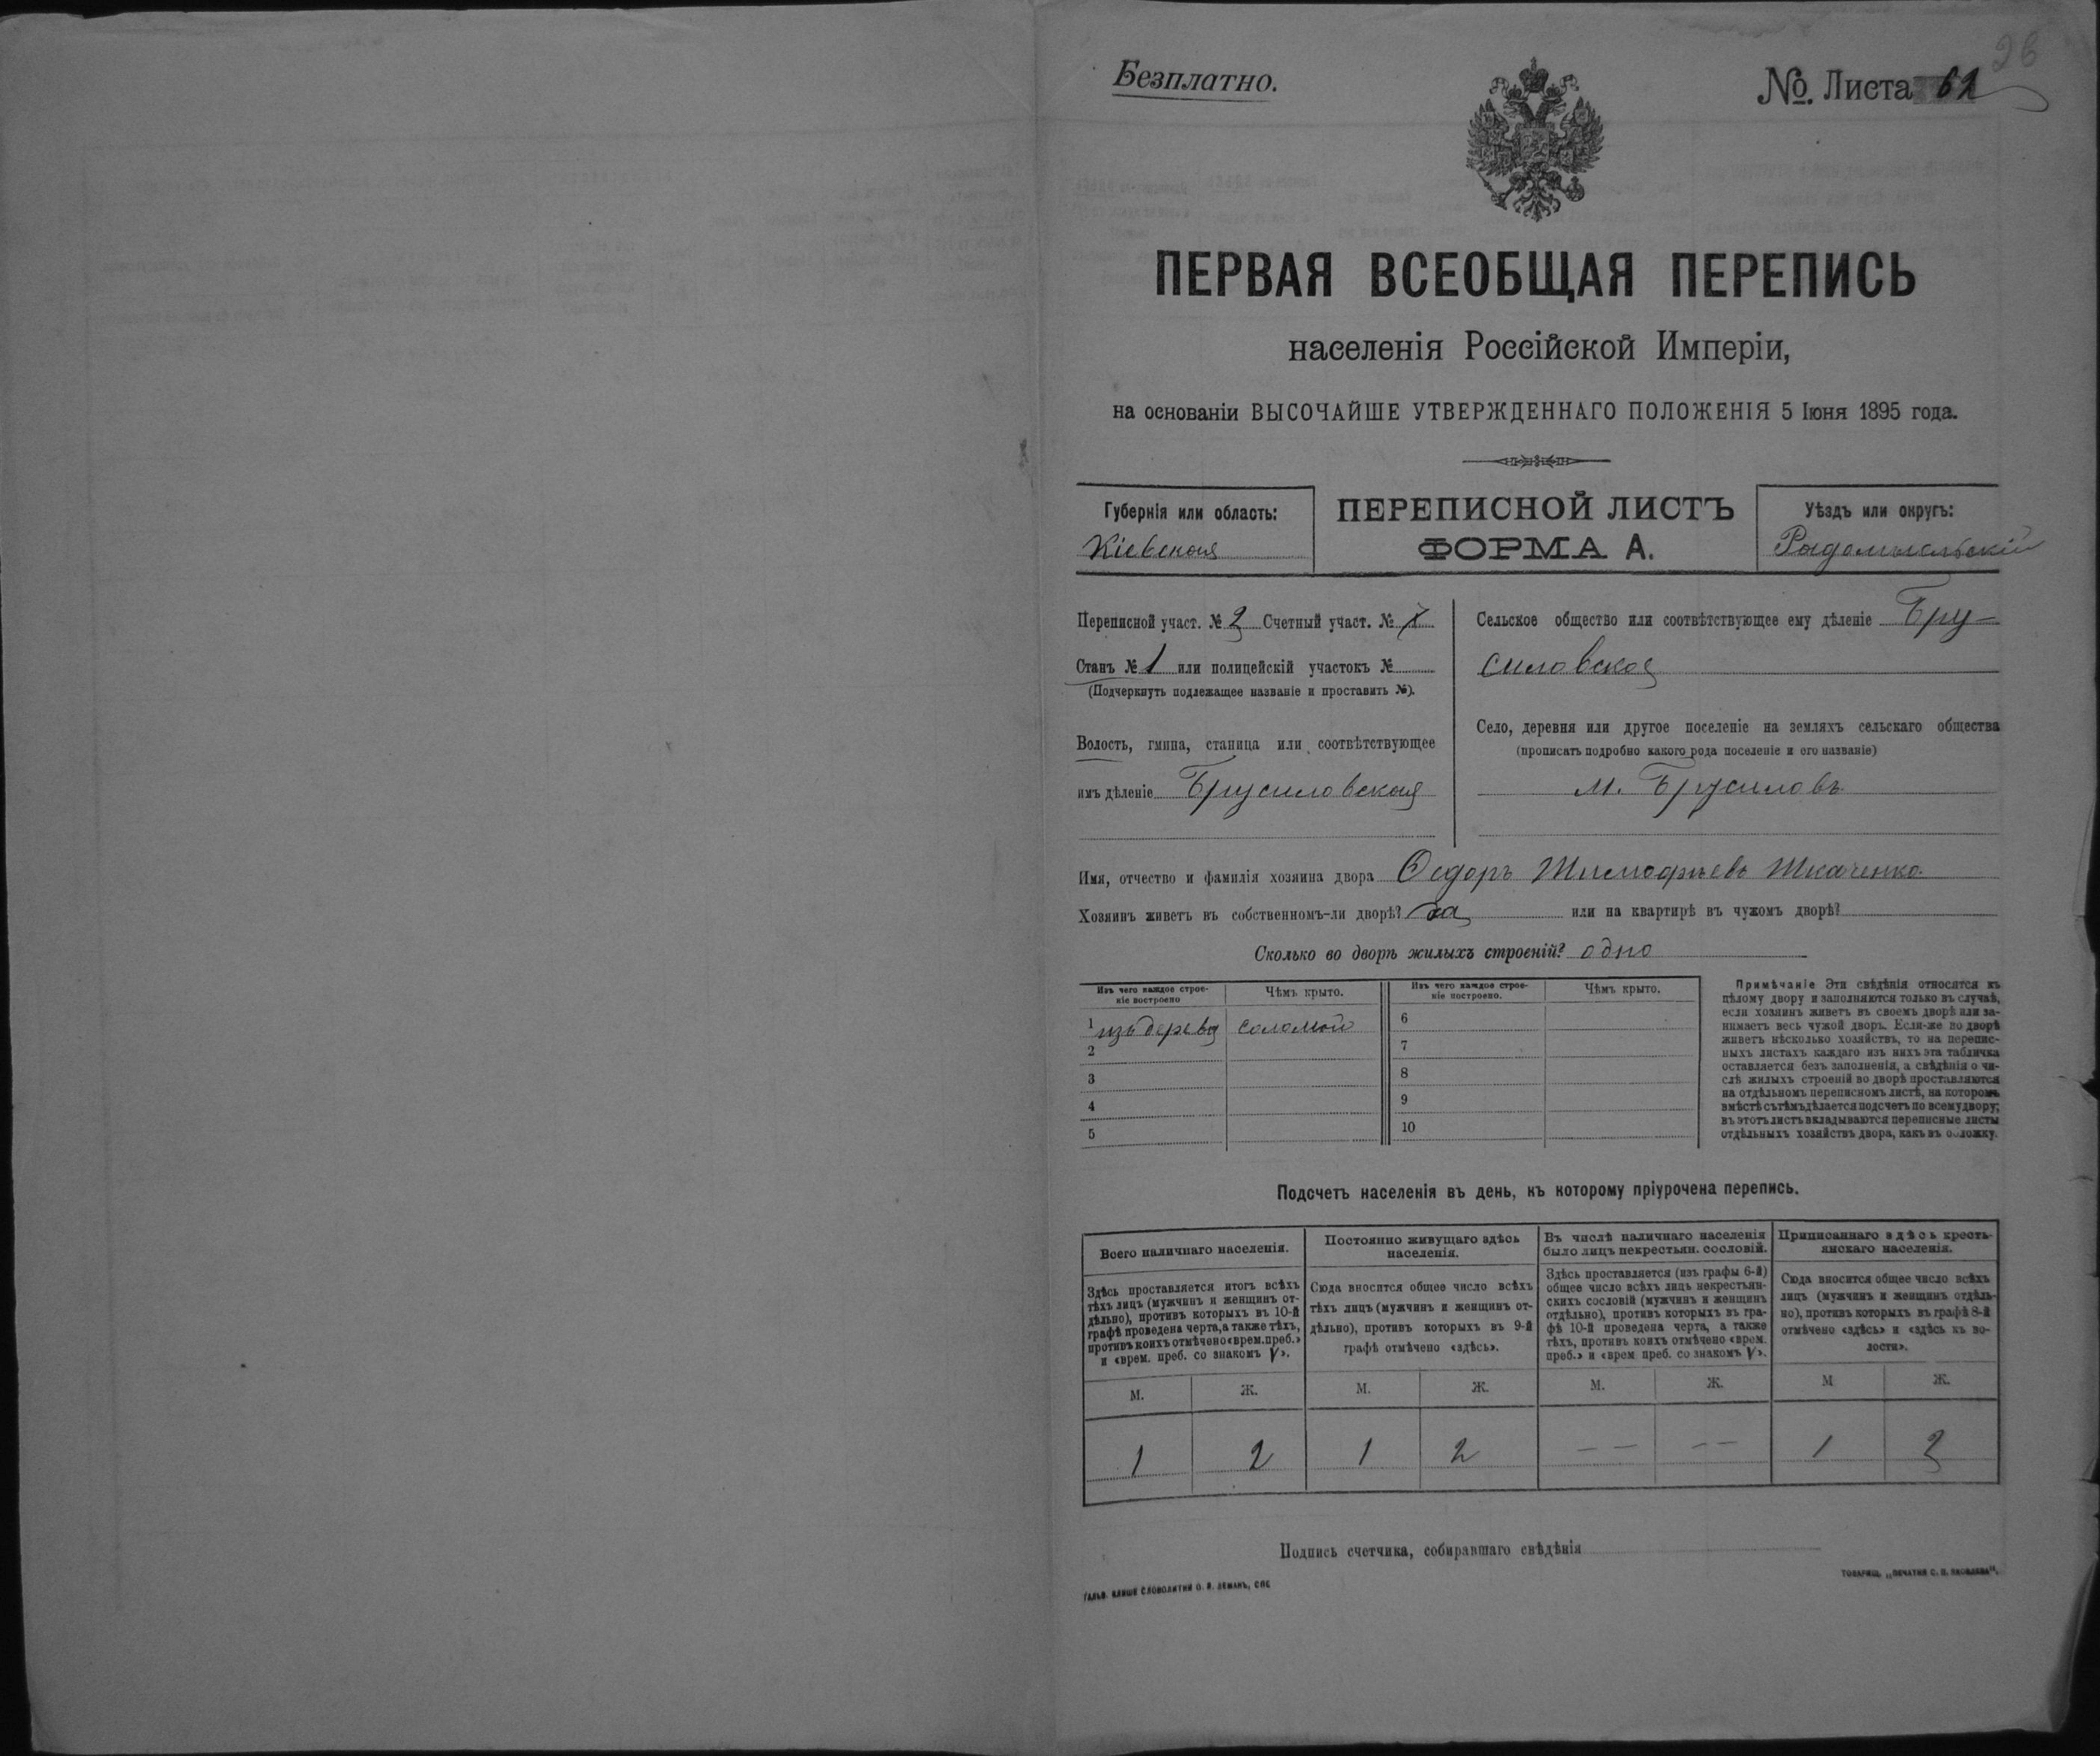 26
Безплатно.
№ Листа 61
ПЕРВАЯ ВСЕОБЩАЯ ПЕРЕПИСЬ
населенія Россійской Имперіи,
на основаніи ВЫСОЧАЙШЕ УТВЕРЖДЕННАГО ПОЛОЖЕНІЯ 5 Іюня 1895 года.
Губернія или область:
Кіевская
ПЕРЕПИСНОЙ ЛИСТЪ
ФОРМА А.
Уѣздъ или округъ:
Радомысльскій
Переписной участ. № 2 Счетный участ. №
Станъ № 1 или полицейскій участокъ №
(Подчеркнуть подлежащее названіе и проставить №).
Волость, гмина, станица или соотвѣтствующее
имъ дѣленіе Брусиловская
Сельское общество или соотвѣтствующее ему дѣленіе Бру-
силовское
Село, деревня или другое поселеніе на земляхъ сельскаго общества
(прописать подробно какого рода поселеніе и его названіе)
м. Брусиловъ
Имя, отчество и фамилія хозяина двора Ѳедоръ Тимофѣевъ Ткаченко
Хозяинъ живетъ въ собственномъ-ли дворѣ? да или на квартирѣ въ чужомъ дворѣ?
Сколько во дворѣ жилыхъ строеній? одно
Изъ чего каждое строе-
ніе построено
Чѣмъ крыто.
Изъ чего каждое строе-
ніе построено.
Чѣмъ крыто.
1 изъ дерева соломой
2
3
4
5
6
7
8
9
10
Примѣчаніе Эти свѣдѣнія относятся къ
цѣлому двору и заполняются только въ случаѣ,
если хозяинъ живетъ въ своемъ дворѣ или за-
нимаетъ весь чужой дворъ. Если-же во дворѣ
живетъ нѣсколько хозяйствъ, то на перепис-
ныхъ листахъ каждаго изъ нихъ эта табличка
оставляется безъ заполненія, а свѣдѣнія о чи-
слѣ жилыхъ строеній во дворѣ проставляются
на отдѣльномъ переписномъ листѣ, на которомъ
вмѣстѣ съ тѣмъ дѣлается подсчетъ по всему двору;
въ этотъ листъ вкладываются переписные листы
отдѣльныхъ хозяйствъ двора, какъ въ обложку.
Подсчетъ населенія въ день, къ которому пріурочена перепись.
Всего наличнаго населенія.
Здѣсь проставляется итогъ всѣхъ
тѣхъ лицъ (мужчинъ и женщинъ от-
дѣльно), противъ которыхъ въ 10-й
графѣ проведена черта, а также тѣхъ,
противъ коихъ отмѣчено «врем. преб.»
и «врем. преб. со знакомъ V».
М. Ж.
1 2
Постоянно живущаго здѣсь
населенія.
Сюда вносится общее число всѣхъ
тѣхъ лицъ (мужчинъ и женщинъ от-
дѣльно), противъ которыхъ въ 9-й
графѣ отмѣчено «здѣсь».
М. Ж.
1 2
Въ числѣ наличнаго населенія
было лицъ некрестьян. сословій.
Здѣсь проставляется (изъ графы 6-й)
общее число всѣхъ лицъ некрестьян-
скихъ сословій (мужчинъ и женщинъ
отдѣльно), противъ которыхъ въ гра-
фѣ 10-й проведена черта, а также
тѣхъ, противъ коихъ отмѣчено «врем.
преб.» и «врем преб. со знакомъ V».
М. Ж.
— — — —
Приписаннаго здѣсь кресть-
янскаго населенія.
Сюда вносится общее число всѣхъ
лицъ (мужчинъ и женщинъ отдѣль-
но), противъ которыхъ въ графѣ 8-й
отмѣчено «здѣсь» и «здѣсь къ во-
лости».
М Ж.
1 2
Подпись счетчика, собиравшаго свѣдѣнія
ГАЛЬВ. КЛИШЕ СЛОВОЛИТНИ О. И. ЛЕМАНЪ, СПБ
ТОВАРИЩ. „ПЕЧАТНЯ С. П. ЯКОВЛЕВА".